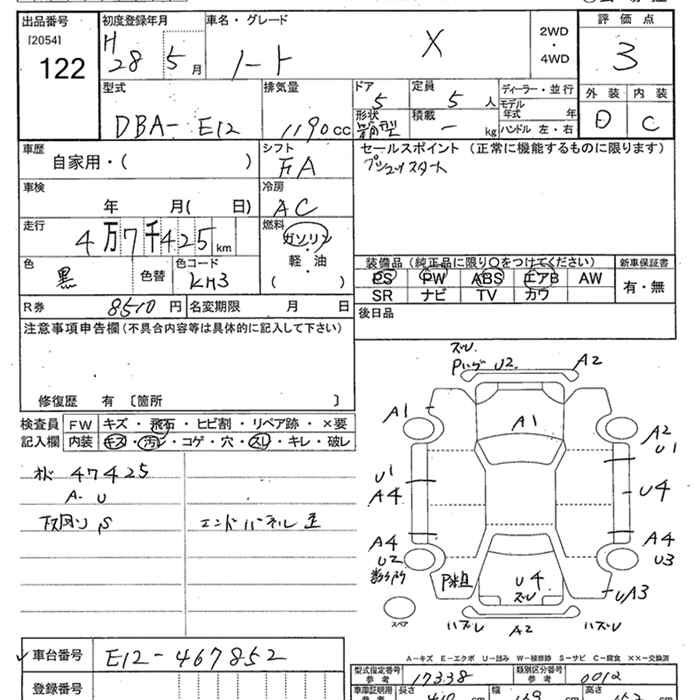 出品番号 初度登録年月 車名・グレード 評価点
[2054] H 28 5月 ノート X 2WD ・ 4WD 3
122
型式 排気量 ドア 定員 ディーラー・並行 外装 内装
DBA-E12 1190cc 5 5人 モデル年式 年 D C
形状 箱型 積載 ー kg ハンドル 左・右
車歴 シフト セールスポイント (正常に機能するものに限ります)
自家用・( ) FA プッシュスタート
車検 冷房
年 月( 日) AC
走行 燃料
4万7千425km ガソリン
軽・油
( )
色 色コード 装備品 (純正品に限り○をつけてください) 新車保証書
黒 色替 KH3 PS PW ABS エアB AW 有・無
SR ナビ TV カワ
R券 8510円 名変期限 月 日 後日品
注意事項申告欄(不具合内容等は具体的に記入して下さい)
修復歴 有 〔箇所 〕
検査員 FW キズ・飛石・ヒビ割・リペア跡・×要
記入欄 内装 キズ・汚レ・コゲ・穴・スレ・キレ・破レ
47425
A・U
下回りS エンドパネル
ズレ
U2 A2
A1 A1 A2
U1
U1
A4 U4
A4 A4
U2 U3
P粗 U4
ズレ UA3
スペア ハズレ A2 ハズレ
A-キズ E-エクボ U-凹み W-補修跡 S-サビ C-腐食 ××-交換済
車台番号 E12-467852 型式指定番号 参考 17338 類別区分番号 参考 0012
登録番号 車庫証明用 長さ 410 幅 169 高さ